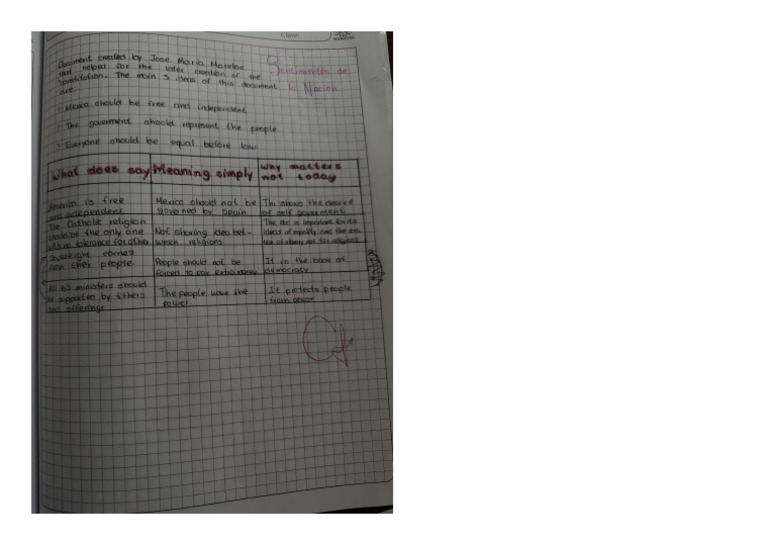 Class:
Document created by Jose Maria Morelos
Sentimientos de
that helped for the later creation of the
constitution. The main 3 ideas of this document
la Nación
are:
1. Mexico should be free and independent
2. The goverment should represent the people.
3. Everyone should be equal before law.
What does say
Meaning simply
Why matters
not today
America is free
and independent
Mexico should not be
governed by Spain
This shows the desire
of self government
The Catholic religion
should be the only one
with no tolerance for other
Not sharing idea bet-
ween religions
The is important for its
ideas of equality and the
Sovereight comes
from ther people
People should not be
forced to pay extra money
It is the base of
democracy
All its ministers should
be supported by tithers
and offerings
The people have the
power
It protects people
from abuse